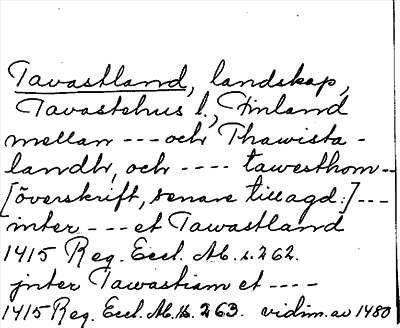 Tavastland, landskap,
Tavastehus l., Finland
mellan --- och Thawista-
landh, och ---- tawesthom--
[överskrift, senare tillagd:] ---
inter --- et Tawastland
1415 Reg. Eccl. Ab. s. 262.
jnter Tawastiam et ----
1415 Reg. Eccl. Ab. s. 263. vidim. av 1480